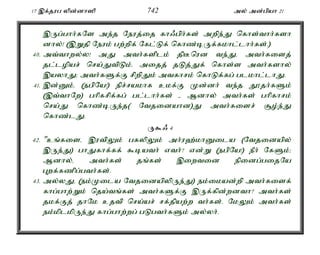 17 இக்தரப லின்னாஸி 742 அல் அன்பியா 21
இருப்பார்களே அந்த நேரத்தை காஃபிர்கள் அறிந்து கொள்வார்களா
னால் (இறுதி நேரம் பற்றிக் கேட்டுக் கொண்டிருக்கமாட்டார்கள்.)
40. அவ்வாறல்ல! அது அவர்களிடம் திடீரென வந்து, அவர்களைத்
தட்டழியச் செய்துவிடும். அதைத் தடுத்துக் கொள்ள அவர்களால்
இயலாது; அவர்களுக்கு சிறிதும் அவகாசம் கொடுக்கப் படமாட்டாது.
41. இன்னும், (நபியே!) நிச்சயமாக உமக்கு முன்னர் வந்த தூதர்களும்
(இவ்வாறே) பரிகசிக்கப் பட்டார்கள் - ஆனால் அவர்கள் பரிகாசம்
செய்து கொண்டிருந்த( வேதனையான)து அவர்களைச் சூழ்ந்து
கொண்டது.
ருகூஃ 4
42. "உங்களை, இரவிலும் பகலிலும் அர்ரஹ்மானுடைய (வேதனையில்
இருந்து) பாதுகாக்கக் கூடியவர் எவர்? என்று (நபியே!) நீர் கேளும்;
ஆனால், அவர்கள் தங்கள் இறைவனை நினைப்பதையே
புறக்கணிப்பவர்கள்.
43. அல்லது, (நம்முடைய வேதனையிலிருந்து) நம்மையன்றி அவர்களைக்
காப்பாற்றும் தெய்வங்கள் அவர்களுக்கு இருக்கின்றனவா? அவர்கள்
தமக்குத் தாமே உதவி செய்யச் சக்தியற்ற வர்கள். மேலும் அவர்கள்
நம்மிடமிருந்து காப்பாற்றப் படுபவர்களும் அல்லர்.